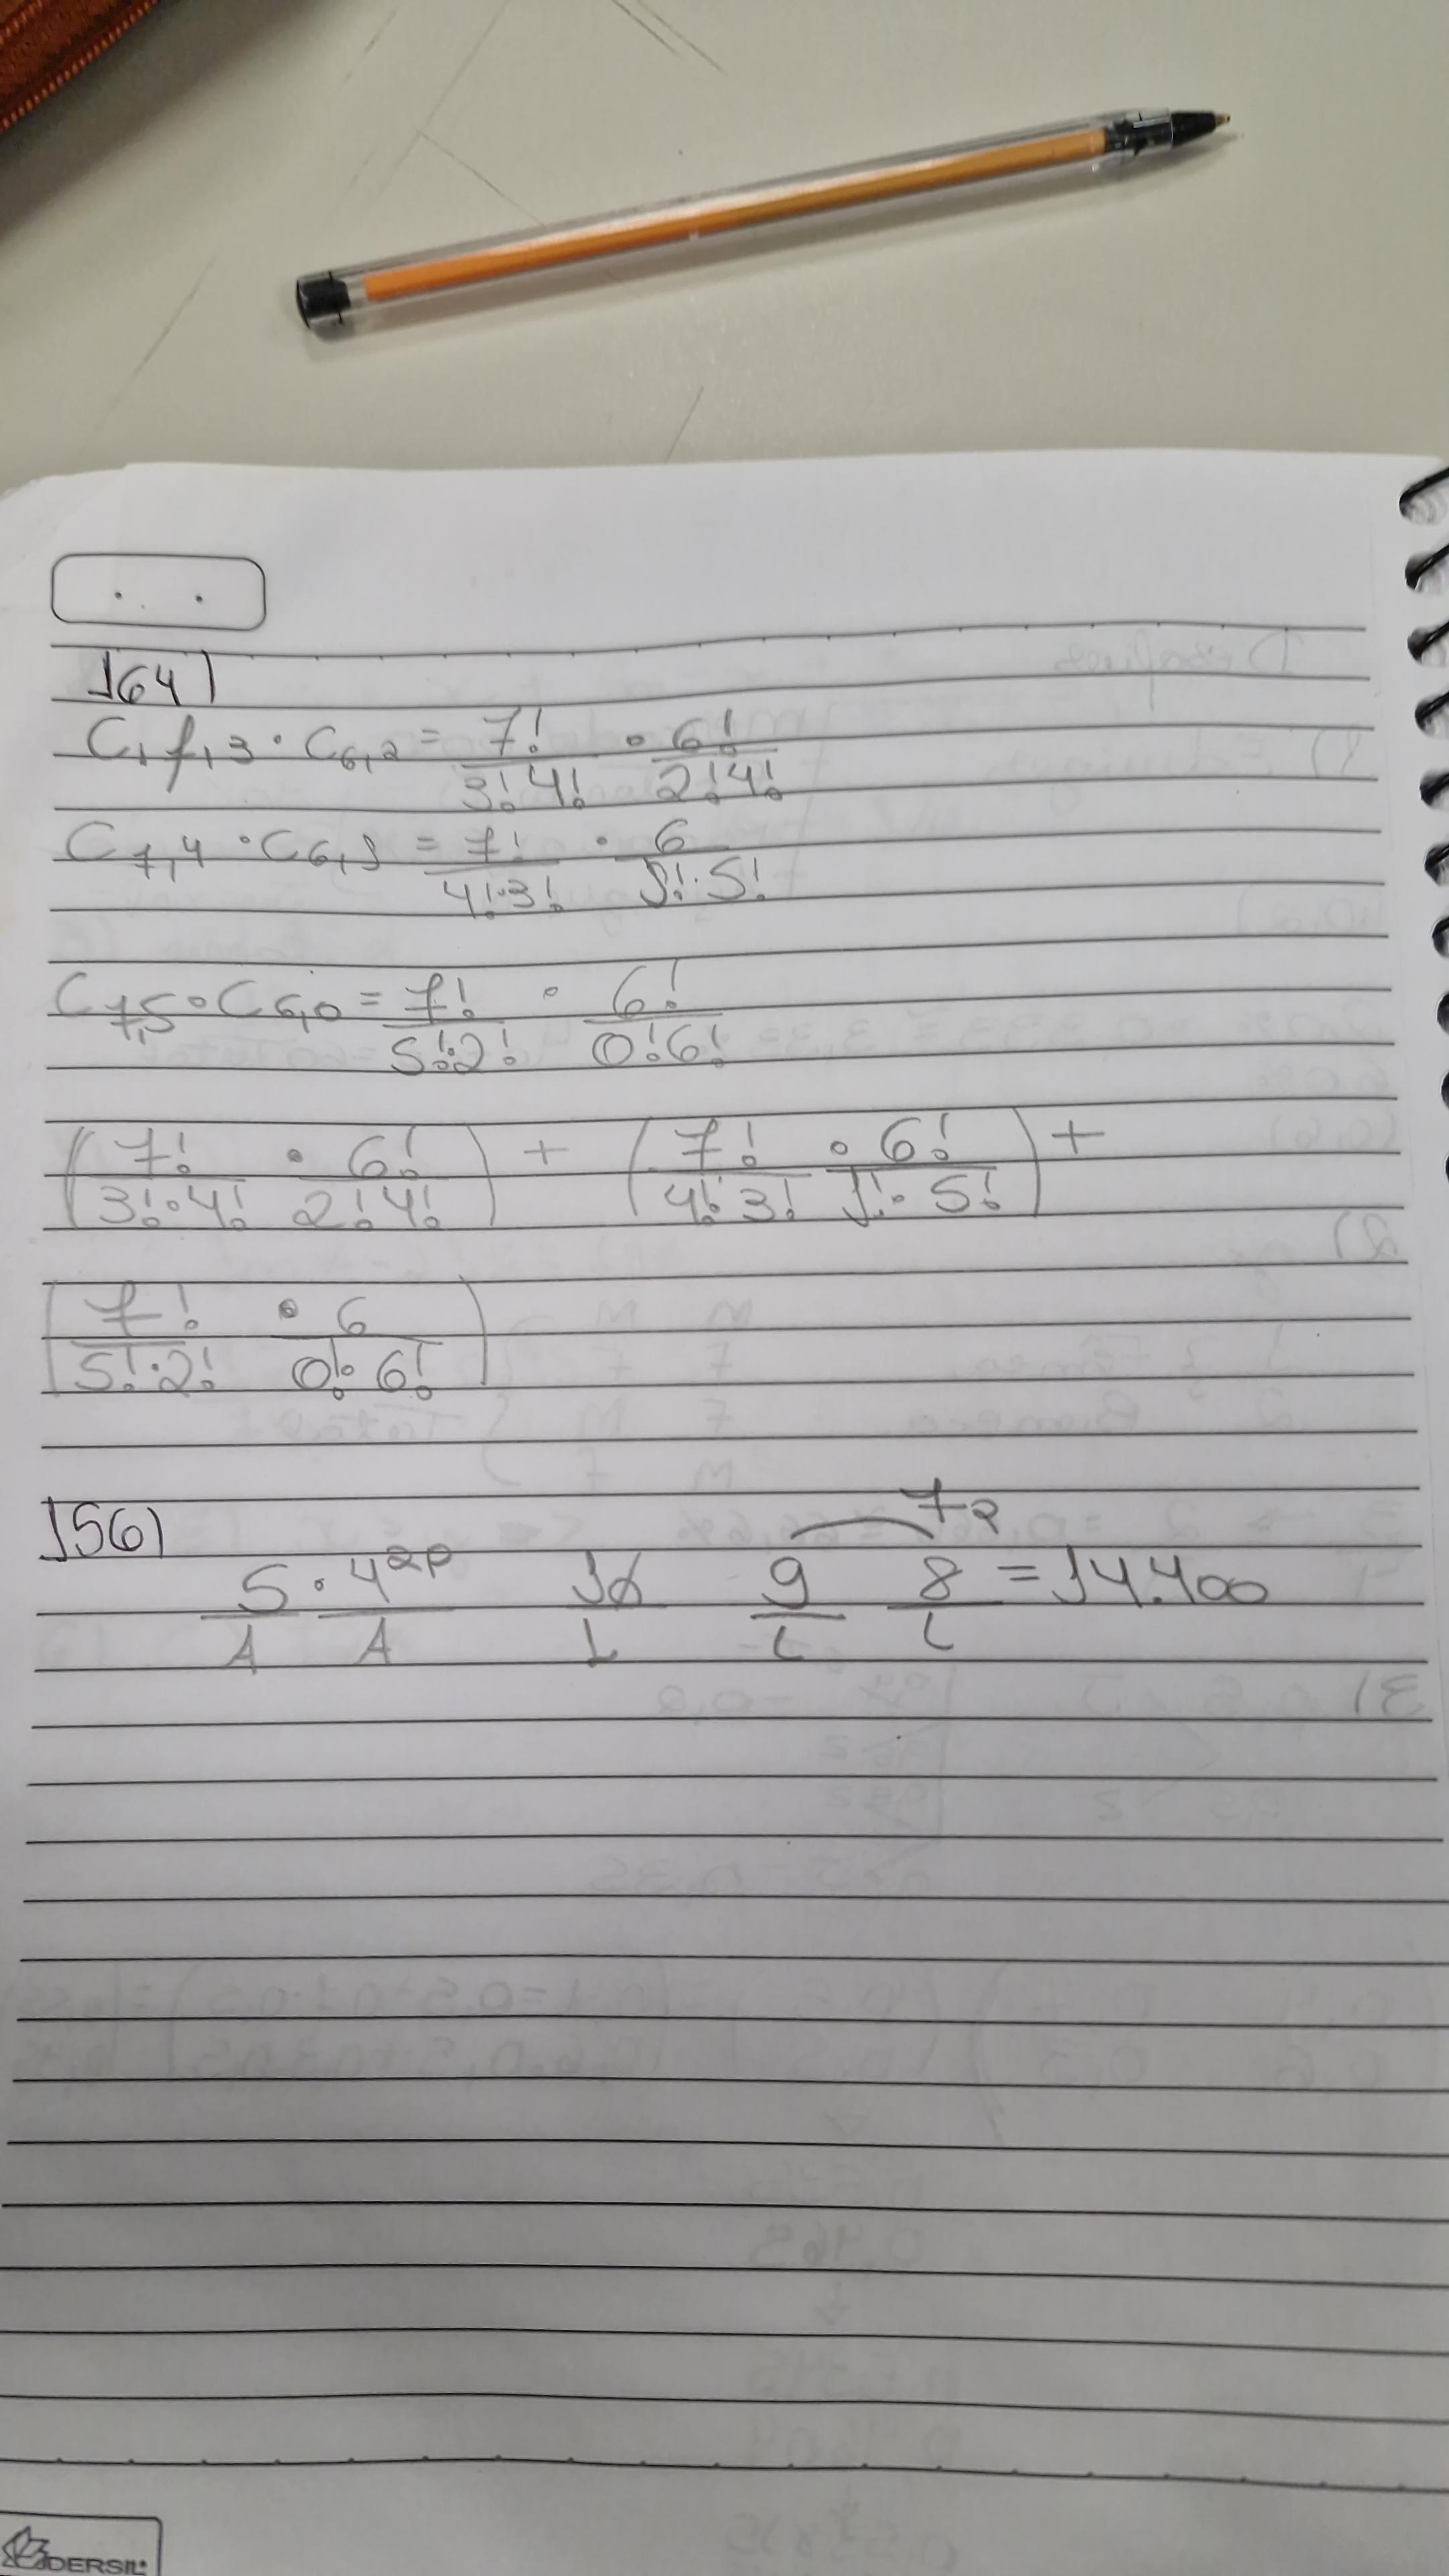 164)
C,7,3 · C6,2 = 7!/3!4! · 6!/2!4!
C7,4 · C6,1 = 7!/4!·3! · 6/1!·5!
C7,5 · C6,0 = 7!/5!·2! · 6!/0!6!
(7!/3!·4! · 6!/2!4!) + (7!/4!3! · 6!/1!·5!) +
(7!/5!·2! · 6/0!·6!)
156)
72
5 · 4 20 10 9 8 = 14.400
A A L L L
DERSIL